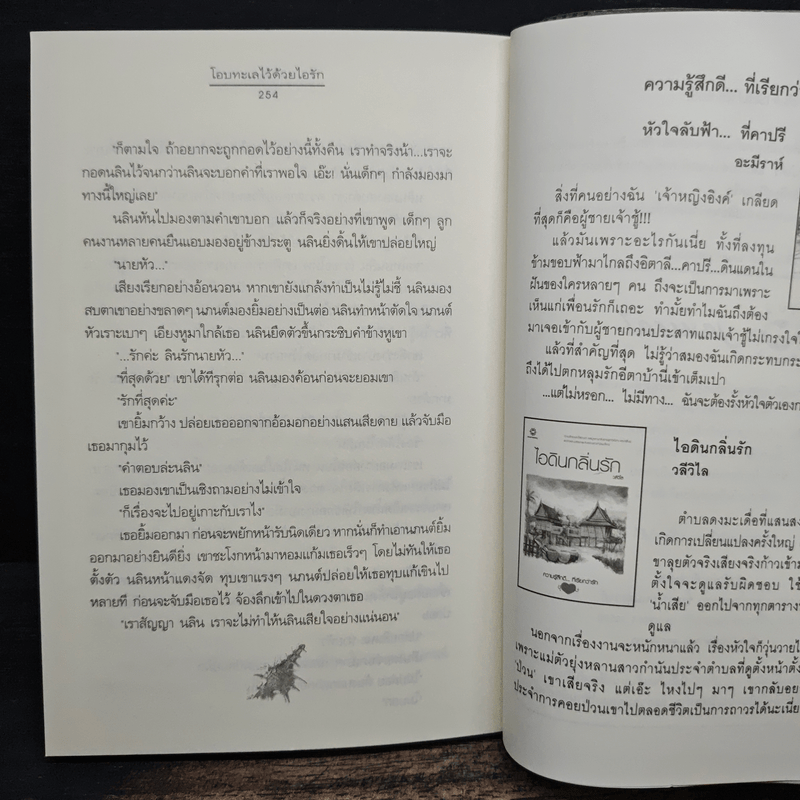 โอบทะเลไว้ด้วยไอรัก
254
"ก็ตามใจ ถ้าอยากจะถูกกอดไว้อย่างนี้ทั้งคืน เราทำจริงน้า...เราจะ
กอดนลินไว้จนกว่านลินจะบอกคำที่เราพอใจ เอ๊ะ! นั่นเด็กๆ กำลังมองมา
ทางนี้ใหญ่เลย"
นลินหันไปมองตามคำเขาบอก แล้วก็จริงอย่างที่เขาพูด เด็กๆ ลูก
คนงานหลายคนยืนแอบมองอยู่ข้างประตู นลินยิ่งดิ้นให้เขาปล่อยใหญ่
"นายหัว..."
เสียงเรียกอย่างอ้อนวอน หากเขายังแกล้งทำเป็นไม่รู้ไม่ชี้ นลินมอง
สบตาเขาอย่างขลาดๆ นภนต์มองยิ้มอย่างเป็นต่อ นลินทำหน้าตัดใจ นภนต์
หัวเราะเบาๆ เอียงหูมาใกล้เธอ นลินยืดตัวขึ้นกระซิบคำข้างหูเขา
"...รักค่ะ ลินรักนายหัว..."
"ที่สุดด้วย" เขาได้ทีรุกต่อ นลินมองค้อนก่อนจะยอมเขา
"รักที่สุดค่ะ"
เขายิ้มกว้าง ปล่อยเธอออกจากอ้อมอกอย่างแสนเสียดาย แล้วจับมือ
เธอมากุมไว้
"คำตอบล่ะนลิน"
เธอมองเขาเป็นเชิงถามอย่างไม่เข้าใจ
"ก็เรื่องจะไปอยู่เกาะกับเราไง"
เธอยิ้มออกมา ก่อนจะพยักหน้ารับนิดเดียว หากนั่นก็ทำเอานภนต์ยิ้ม
ออกมาอย่างยินดียิ่ง เขาชะโงกหน้ามาหอมแก้มเธอเร็วๆ โดยไม่ทันให้เธอ
ตั้งตัว นลินหน้าแดงจัด ทุบเขาแรงๆ นภนต์ปล่อยให้เธอทุบแก้เขินไป
หลายที ก่อนจะจับมือเธอไว้ จ้องลึกเข้าไปในดวงตาเธอ
"เราสัญญา นลิน เราจะไม่ทำให้นลินเสียใจอย่างแน่นอน"
ความรู้สึกดี... ที่เรียกว่
หัวใจลับฟ้า... ที่คาปรี
อะมีราห์
สิ่งที่คนอย่างฉัน 'เจ้าหญิงอิงค์' เกลียด
ที่สุดก็คือผู้ชายเจ้าชู้!!!
แล้วมันเพราะอะไรกันเนี่ย ทั้งที่ลงทุน
ข้ามขอบฟ้ามาไกลถึงอิตาลี...คาปรี...ดินแดนใน
ฝันของใครหลายๆ คน ถึงจะเป็นการมาเพราะ
เห็นแก่เพื่อนรักก็เถอะ ทำมั้ยทำไมฉันถึงต้อง
มาเจอเข้ากับผู้ชายกวนประสาทแถมเจ้าชู้ไม่เกรงใจใ
แล้วที่สำคัญที่สุด ไม่รู้ว่าสมองฉันเกิดกระทบกระ
ถึงได้ไปตกหลุมรักอีตาบ้านี่เข้าเต็มเปา
...แต่ไม่หรอก... ไม่มีทาง... ฉันจะต้องรั้งหัวใจตัวเองก
ไอดินกลิ่นรัก
ความรู้สึกดี... ที่เรียกว่ารัก
ไอดินกลิ่นรัก
วลีวิไล
ตำบลดงมะเดื่อที่แสนส
เกิดการเปลี่ยนแปลงครั้งใหญ่
ขาลุยตัวจริงเสียงจริงก้าวเข้าม
ตั้งใจจะดูแลรับผิดชอบ ใช้
'น้ำเสีย' ออกไปจากทุกตาราง
ดูแล
นอกจากเรื่องงานจะหนักหนาแล้ว เรื่องหัวใจก็วุ่นวายไ
เพราะแม่ตัวยุ่งหลานสาวกำนันประจำตำบลที่ดูตั้งหน้าตั้ง
'ป่วน' เขาเสียจริง แต่เอ๊ะ ไหงไปๆ มาๆ เขากลับอย
ประจำการคอยป่วนเขาไปตลอดชีวิตเป็นการถาวรได้นะเนี่ย